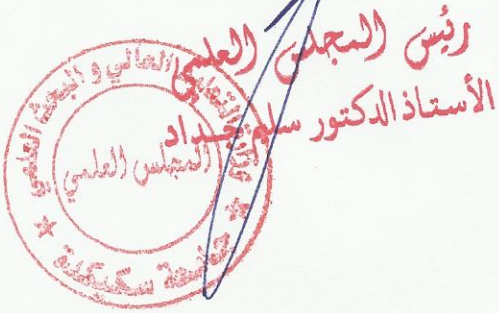 رئيس المجلس العلمي
الأستاذ الدكتور سليم حداد
التعليم العالي و البحث العلمي
المجلس العلمي
جامعة سكيكدة